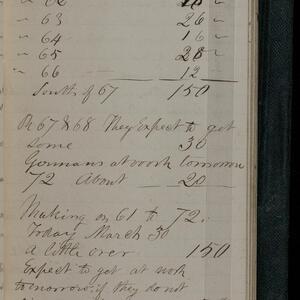 " 63 26 "
" 64 16 "
" 65 28 "
" 66 12 "
South of 67 150
On 67 & 68 They Expect to get
Some 30
Germans at work tomorrow
72 About 20
Making on 61 to 72.
Today March 30
a little over 150
Expect to get at work
tomorrow if they do not